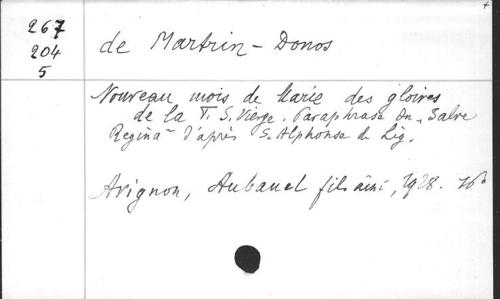 267
204
5
de Martrin-Donos
Nouveau mois de Marie des gloires
de la T. S. Vierge. Paraphrase du „Salve
Regina" d'après S. Alphonse de Lig.
Avignon, Aubanel fils aîné, 1928. 16°